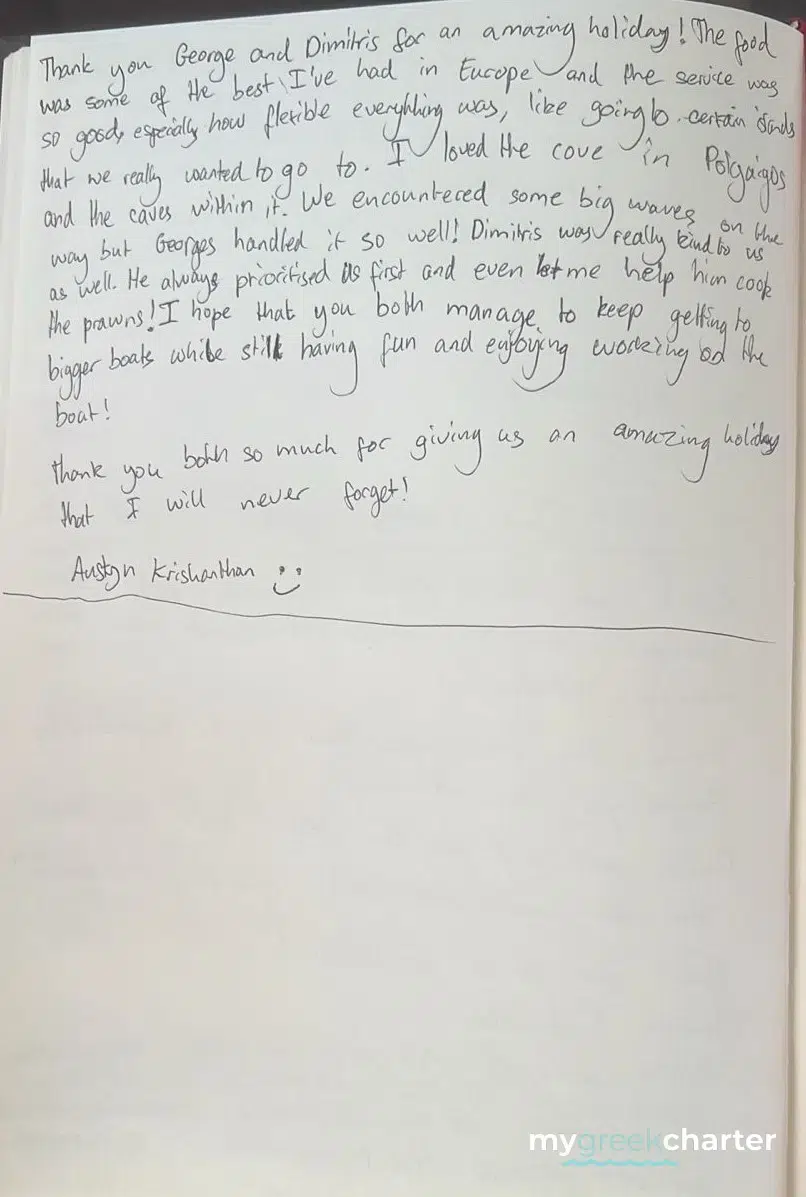 Thank you George and Dimitris for an amazing holiday! The food
was some of the best I've had in Europe and the service was
so good, especially how flexible everything was, like going to certain islands
that we really wanted to go to. I loved the cove in Polyaigos
and the caves within it. We encountered some big waves on the
way but Georges handled it so well! Dimitris was really kind to us
as well. He always prioritised us first and even let me help him cook
the prawns! I hope that you both manage to keep getting to
bigger boats while still having fun and enjoying working on the
boat!
Thank you both so much for giving us an amazing holiday
that I will never forget!
Austyn Krishanthan
mygreekcharter